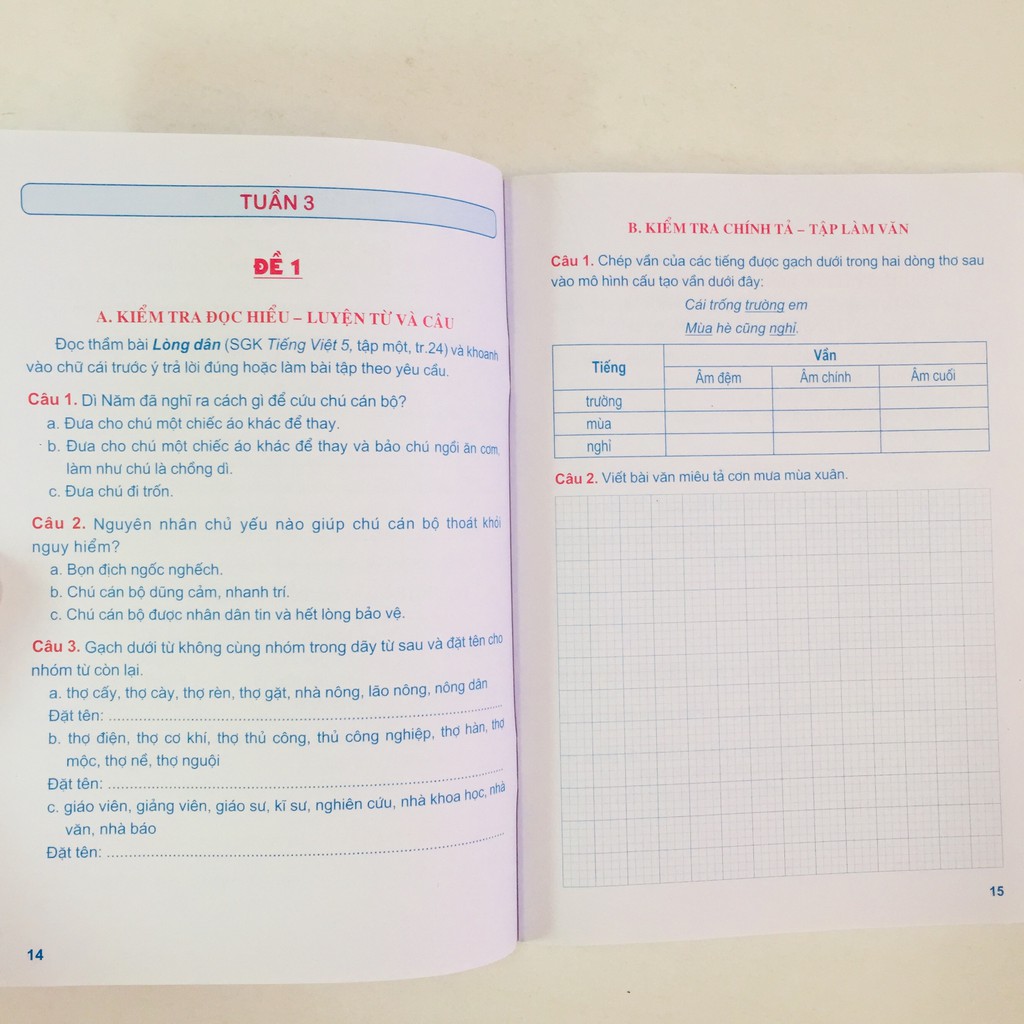 TUẦN 3
ĐỀ 1
A. KIỂM TRA ĐỌC HIỂU – LUYỆN TỪ VÀ CÂU
Đọc thầm bài Lòng dân (SGK Tiếng Việt 5, tập một, tr.24) và khoanh
vào chữ cái trước ý trả lời đúng hoặc làm bài tập theo yêu cầu.
Câu 1. Dì Năm đã nghĩ ra cách gì để cứu chú cán bộ?
a. Đưa cho chú một chiếc áo khác để thay.
b. Đưa cho chú một chiếc áo khác để thay và bảo chú ngồi ăn cơm,
làm như chú là chồng dì.
c. Đưa chú đi trốn.
Câu 2. Nguyên nhân chủ yếu nào giúp chú cán bộ thoát khỏi
nguy hiểm?
a. Bọn địch ngốc nghếch.
b. Chú cán bộ dũng cảm, nhanh trí.
c. Chú cán bộ được nhân dân tin và hết lòng bảo vệ.
Câu 3. Gạch dưới từ không cùng nhóm trong dãy từ sau và đặt tên cho
nhóm từ còn lại.
a. thợ cấy, thợ cày, thợ rèn, thợ gặt, nhà nông, lão nông, nông dân
Đặt tên: ........................................................................
b. thợ điện, thợ cơ khí, thợ thủ công, thủ công nghiệp, thợ hàn, thợ
mộc, thợ nề, thợ nguội
Đặt tên: ........................................................................
c. giáo viên, giảng viên, giáo sư, kĩ sư, nghiên cứu, nhà khoa học, nhà
văn, nhà báo
Đặt tên: ........................................................................
14
B. KIỂM TRA CHÍNH TẢ – TẬP LÀM VĂN
Câu 1. Chép vần của các tiếng được gạch dưới trong hai dòng thơ sau
vào mô hình cấu tạo vần dưới đây:
Cái trống trường em
Mùa hè cũng nghỉ.
Tiếng Vần
Âm đệm Âm chính Âm cuối
trường
mùa
nghỉ
Câu 2. Viết bài văn miêu tả cơn mưa mùa xuân.
15